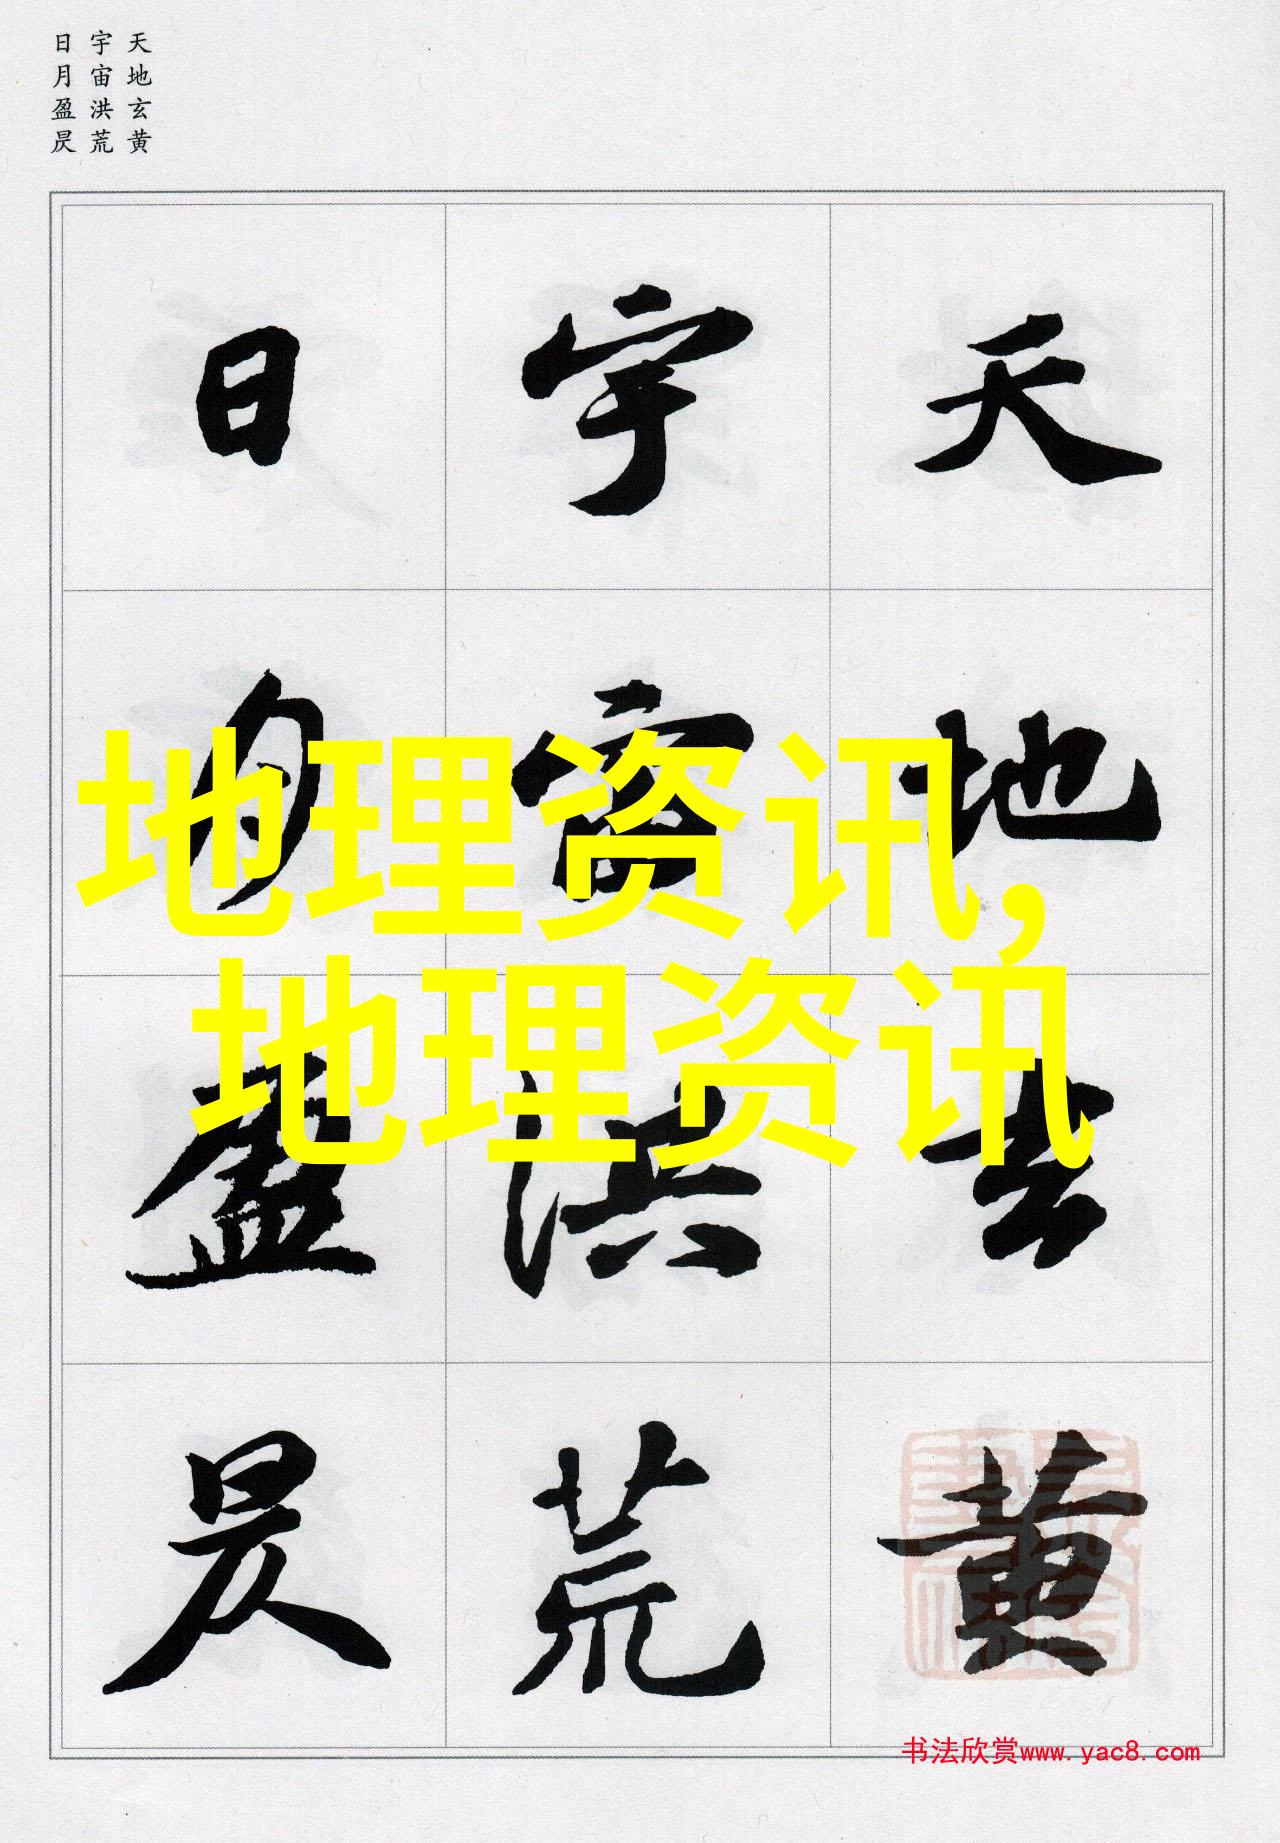 天地玄黄
宇宙洪荒
日月盈昃
天地玄黄
宇宙洪荒
日月盈昃
地理资讯,
地理资讯
书法欣赏www.yac8.com